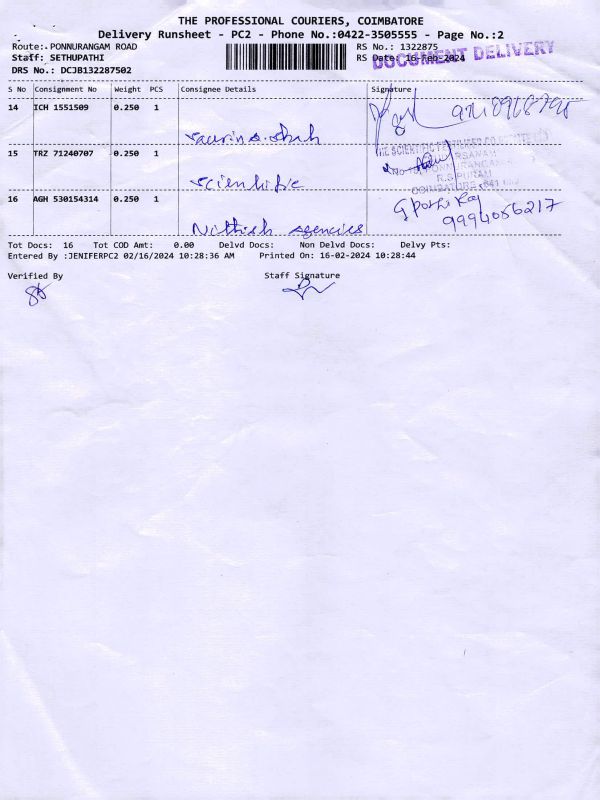 THE PROFESSIONAL COURIERS, COIMBATORE
Delivery Runsheet - PC2 - Phone No.:0422-3505555 - Page No.:2
Route: PONNURANGAM ROAD RS No.: 1322875
Staff: SETHUPATHI RS Date: 16-Feb-2024
DOCUMENT DELIVERY
DRS No.: DCJB132287502
S No Consignment No Weight PCS Consignee Details Signature
14 ICH 1551509 0.250 1
15 TRZ 71240707 0.250 1
THE SCIENTIFIC FERTILISER CO
R.S. PURAM
COIMBATORE - 641
scientific
16 AGH 530154314 0.250 1
9994056217
Nithish agencies
Tot Docs: 16 Tot COD Amt: 0.00 Delvd Docs: Non Delvd Docs: Delvy Pts:
Entered By :JENIFERPC2 02/16/2024 10:28:36 AM Printed On: 16-02-2024 10:28:44
Verified By Staff Signature